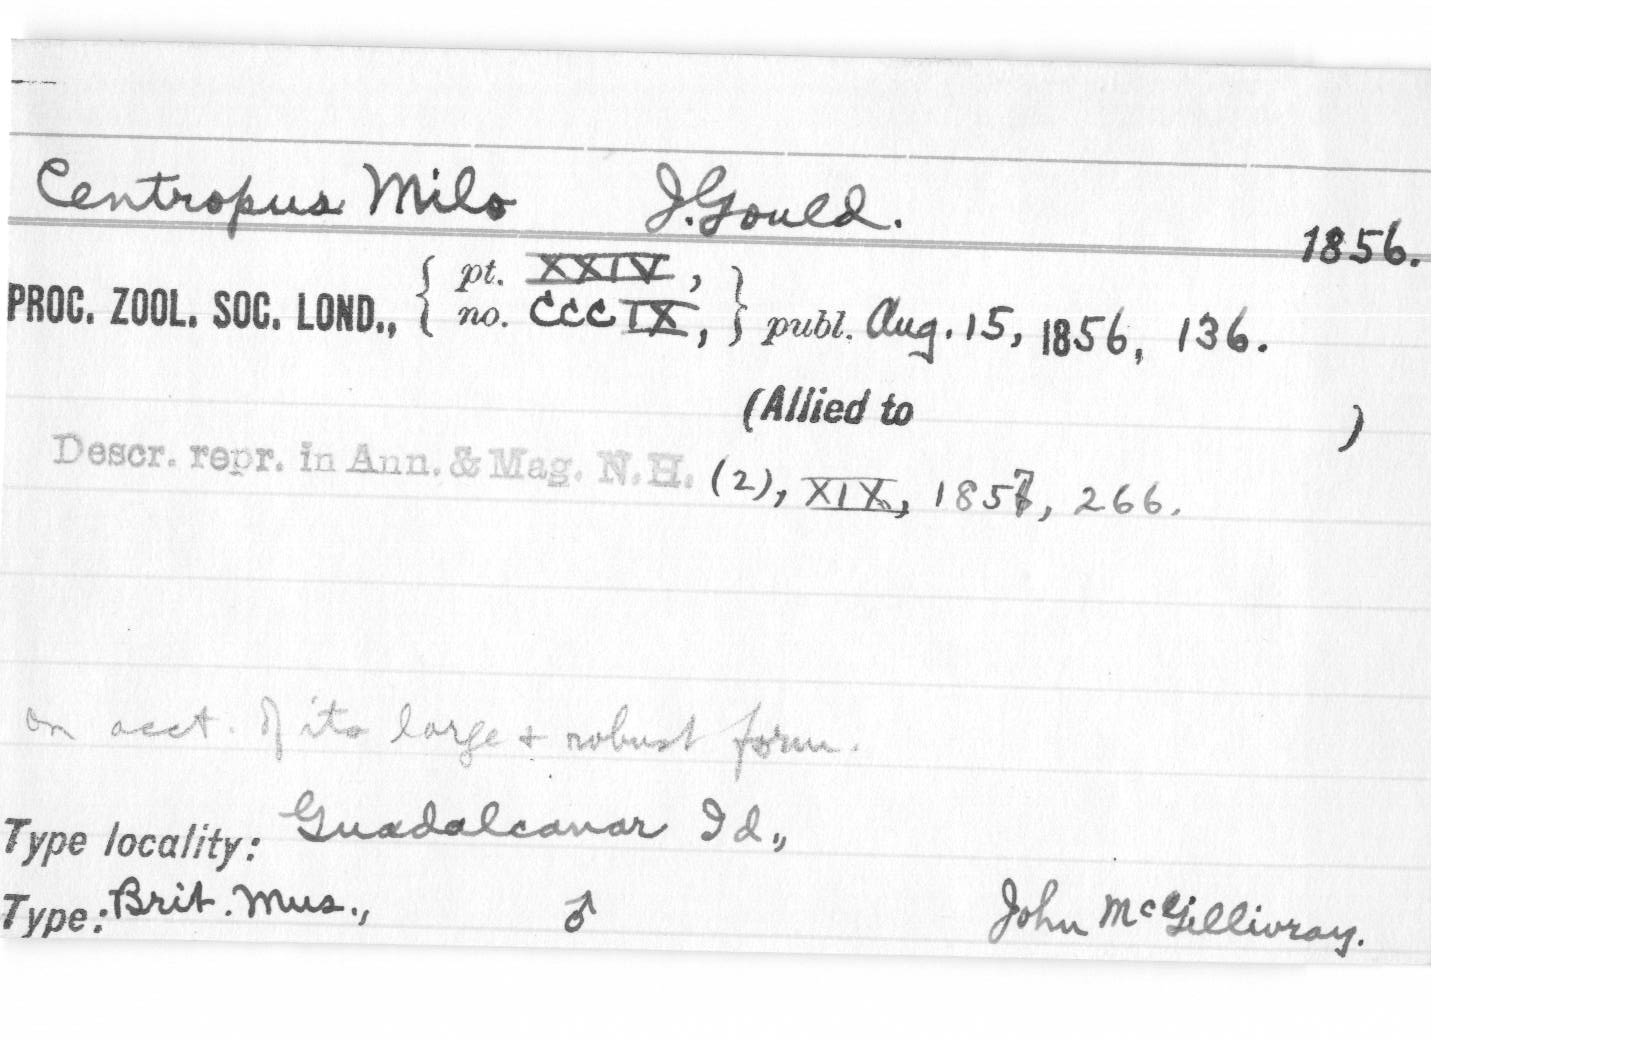 Centropus Milo J. Gould. 1856.
PROC. ZOOL. SOC. LOND., { pt. XXIV, no. CCCIX, } publ. Aug. 15, 1856, 136.
(Allied to )
Descr. repr. in Ann. & Mag. N.H. (2), XIX, 1857, 266.
on acct. of its large + robust form.
Type locality: Guadalcanar Id.,
Type: Brit. Mus., ♂ John McGillivray.